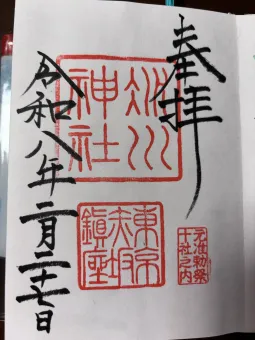 奉拝
氷川神社
東京赤坂鎮座
元准勅祭十社之内
令和八年二月二十七日